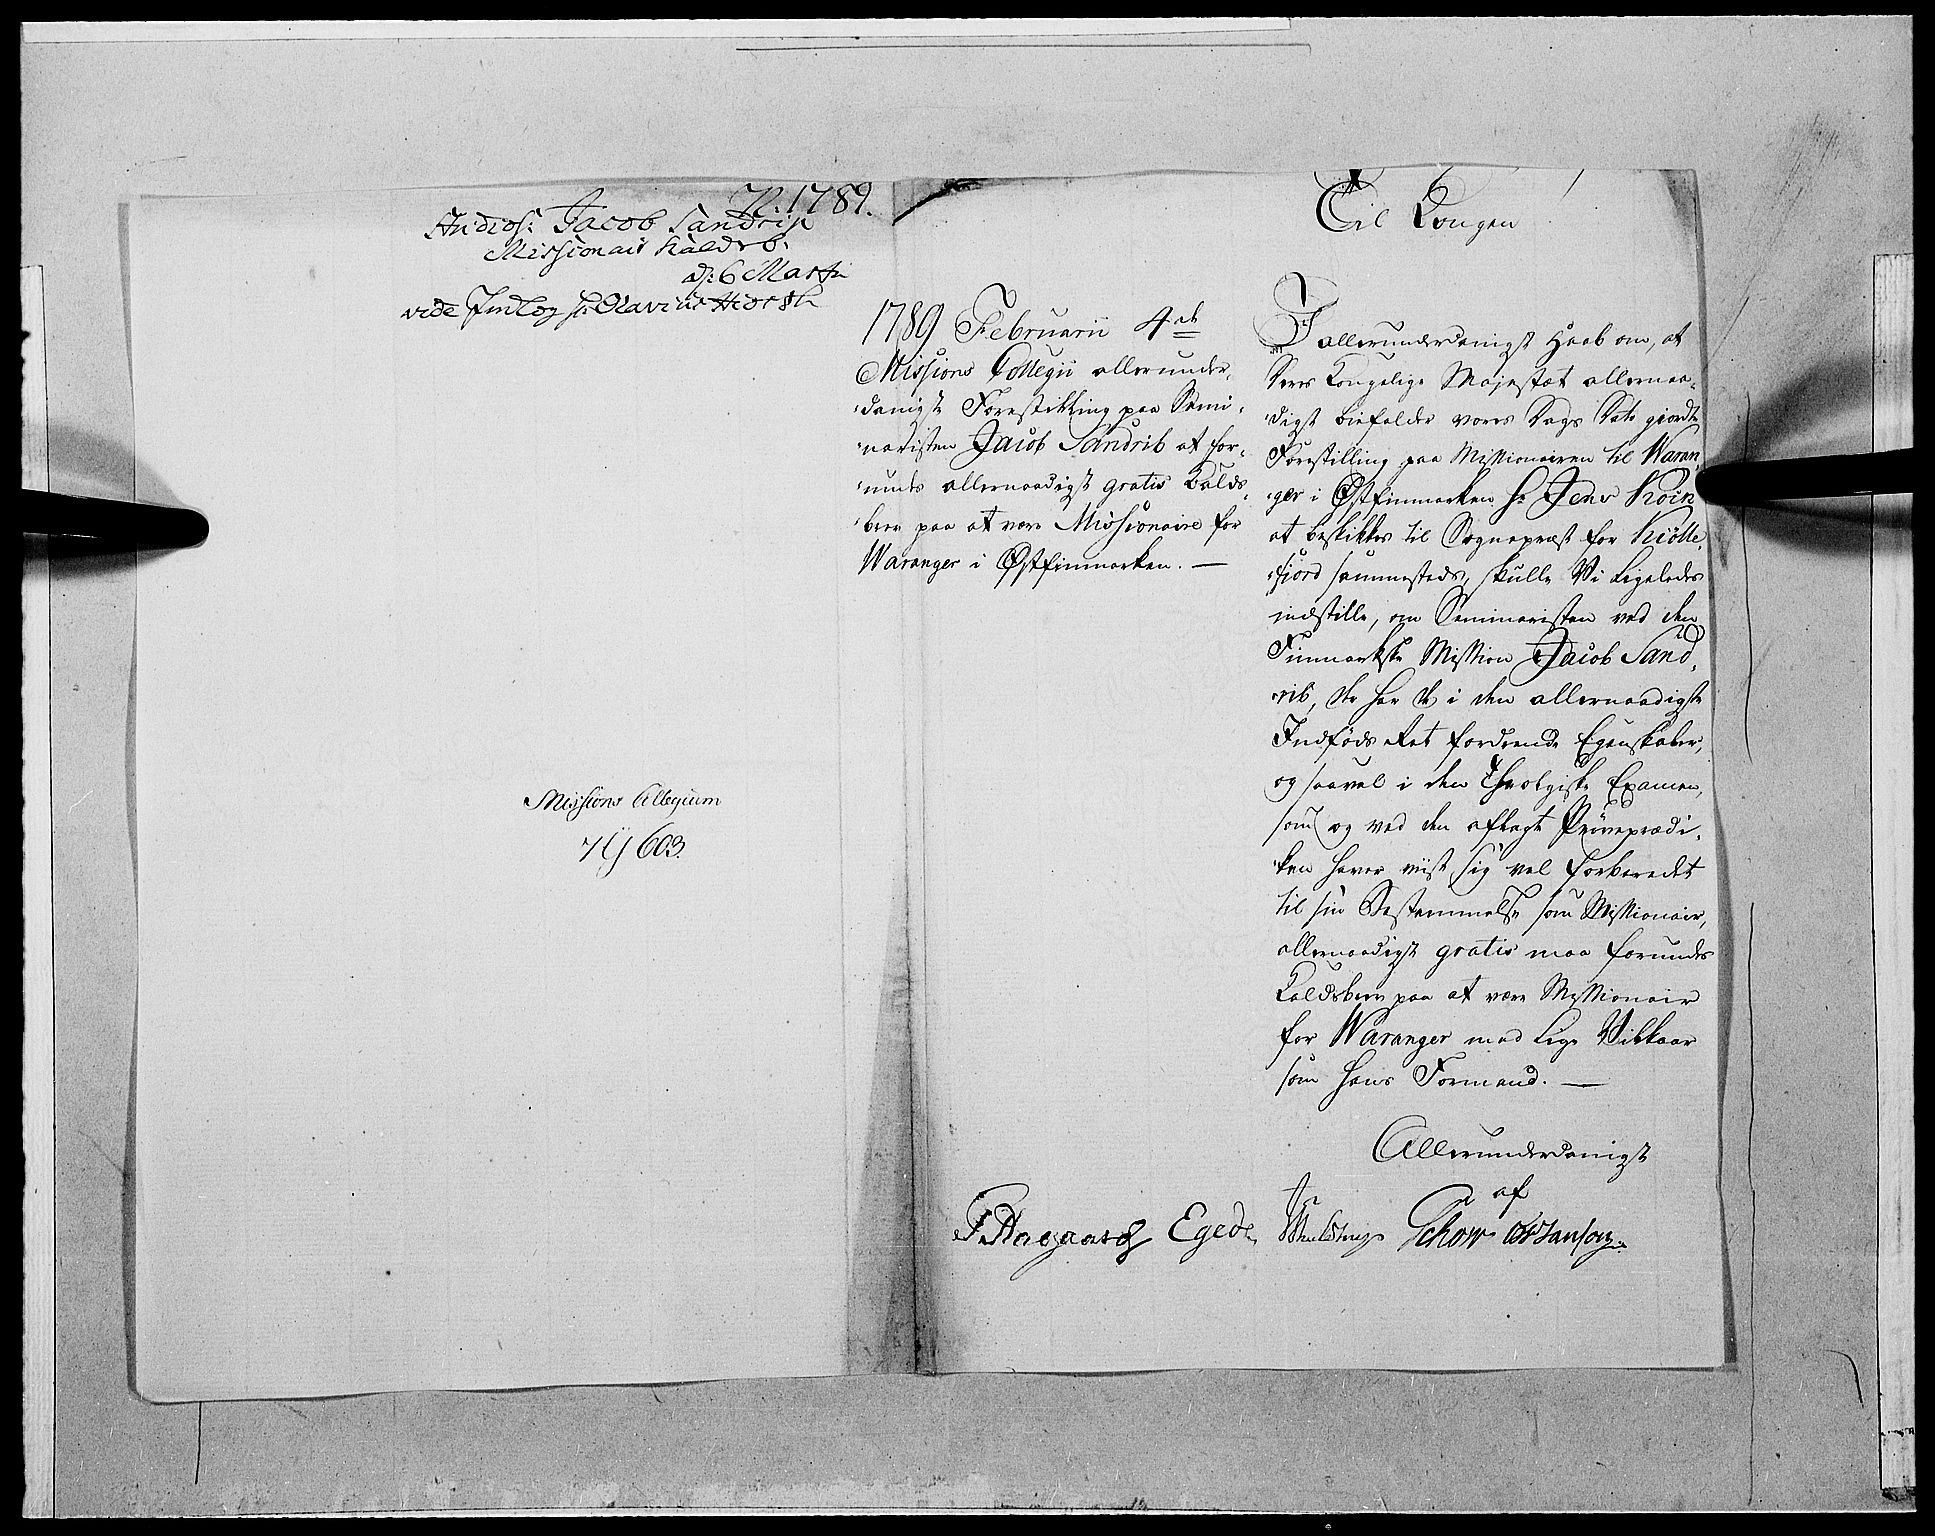 N. 1789.
Studios: Jacob Sandrib
Missionair Kaldsb.
d: 6 Martii
vide Indlæg for Olavius Hiorth
Missions Collegium
603.
1789 Februarii 4de
Missions Collegii allerunder-
danigste Forestilling paa Semi-
naristen Jacob Sandrib at for-
undes allernaadigst gratis Kalds-
brev paa at være Missionaire for
Waranger i Østfinmarken. —
Til Kongen
I allerunderdanigst Haab om, at
Deres Kongelige Majestæt allernaa-
digst biefalder vores Dags Dato giordte
Forestilling paa Missionairen til Waran-
ger i Østfinmarken Hr Jens Koin
at beskikkes til Sognepræst for Kiølle-
fiord sammesteds, skulle Vi ligeledes
indstille, om Seminaristen ved den
Finmarkske Mission Jacob Sand-
rib, der har de i den allernaadigste
Indføds Ret fordrende Egenskaber,
og saavel i den Theologiske Examen,
som og ved den aflagte Prøveprædi-
ken haver viist sig vel forberedet
til sin Bestemmelse som Missionair,
allernaadigst gratis maa forundes
Kaldsbrev paa at være Missionair
for Waranger med lige Vilkaar
som hans Formand. —
Allerunderdanigst
af
F. Aagaard Egede Schow